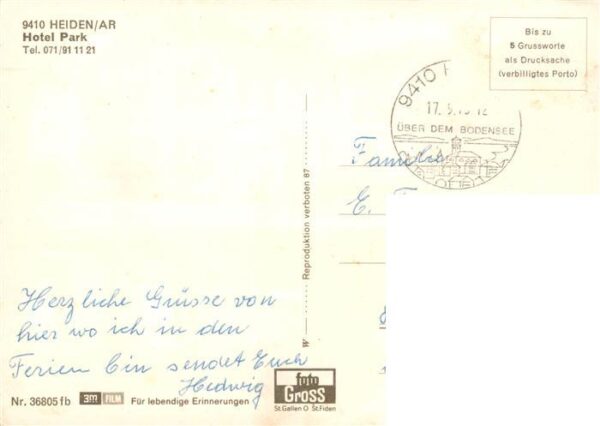 9410 HEIDEN/AR
Hotel Park
Tel. 071/91 11 21
Bis zu
5 Grussworte
als Drucksache
(verbilligtes Porto)
9410 H
17. 5. 12
ÜBER DEM BODENSEE
Familie
E.
Reproduktion verboten 87
W
Herzliche Grüsse von
hier wo ich in den
Ferien bin sendet Euch
Hedwig
Nr. 36805 fb
3M FILM
Für lebendige Erinnerungen
foto
GROSS
St.Gallen O St.Fiden